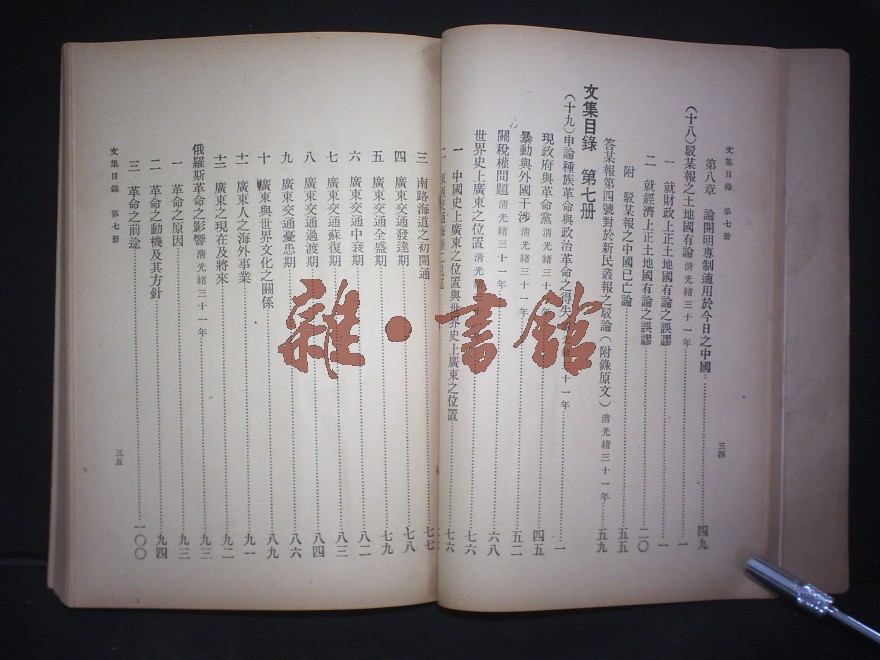 文集目錄 第七册 三四
第八章 論開明專制適用於今日之中國 四九
(十八)駁某報之土地國有論 清光緒三十一年 一
一 就財政上正土地國有論之誤謬 一
二 就經濟上正土地國有論之誤謬 二〇
附 駁某報之中國已亡論 五五
答某報第四號對於新民叢報之駁論(附錄原文) 清光緒三十一年 五九
文集目錄 第七册
(十九)申論種族革命與政治革命之得失 三十一年 一
現政府與革命黨 清光緒三十 年 四五
暴動與外國干涉 清光緒三十一年 五二
關稅權問題 清光緒三十一年 六八
世界史上廣東之位置 清光 七六
一 中國史上廣東之位置與世界史上廣東之位置 七六
二
三 南路海道之初開通 七七
四 廣東交通發達期 七八
五 廣東交通全盛期 七九
六 廣東交通中衰期 八二
七 廣東交通蘇復期 八三
八 廣東交通過渡期 八四
九 廣東交通憂患期 八六
十 廣東與世界文化之關係 八九
十一 廣東人之海外事業 九一
十二 廣東之現在及將來 九二
俄羅斯革命之影響 清光緒三十一年 九三
一 革命之原因 九三
二 革命之動機及其方針 九四
三 革命之前途 一〇〇
文集目錄 第七册 三五
雜·書館